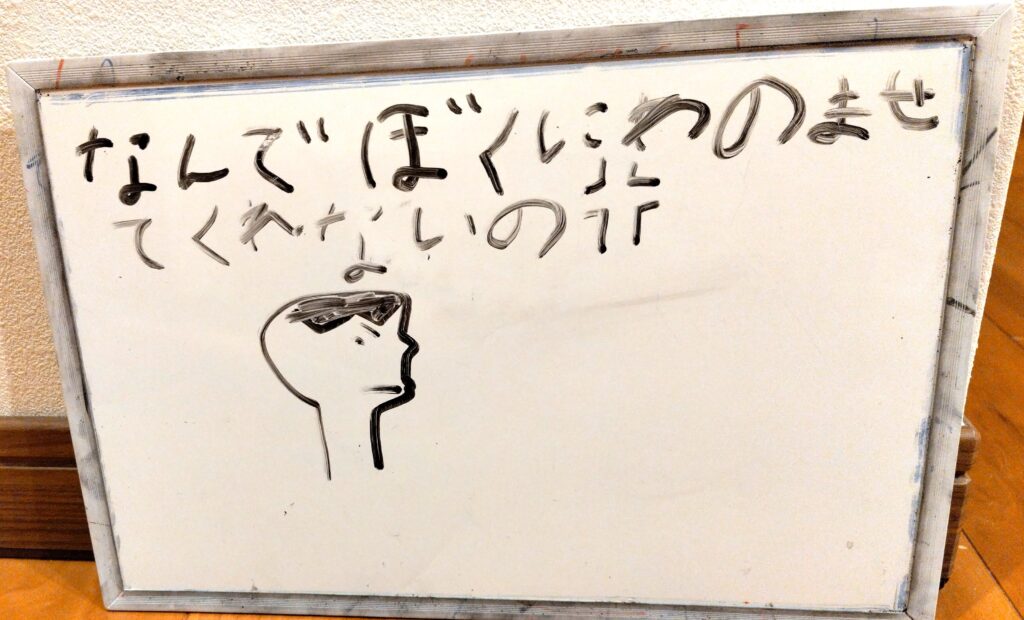 なんでぼくにわのませ
てくれないの💢